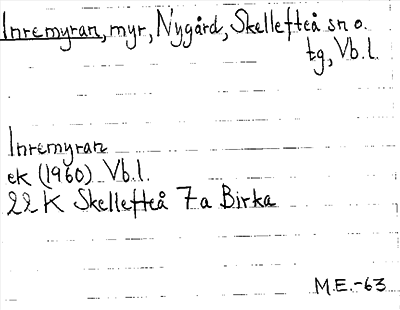 Inremyran, myr, Nygård, Skellefteå sn o.
tg, Vb.l.
Inremyran
ek (1960) Vb.l.
22 K Skellefteå 7a Birka
M.E.-63